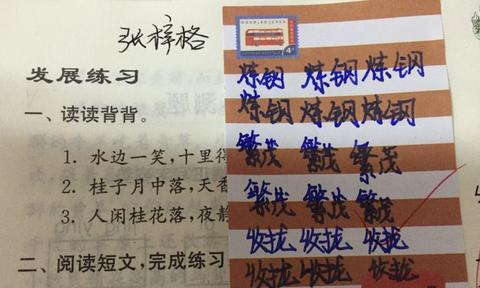 张梓格
发展练习
一、读读背背。
1. 水边一笑,十里得
2. 桂子月中落,天香
3. 人闲桂花落,夜静
二、阅读短文,完成练习
炼钢 炼钢 炼钢
炼钢 炼钢 炼钢
繁茂 繁茂 繁茂
繁茂 繁茂 繁茂
收拢 收拢 收拢
收拢 收拢 收拢